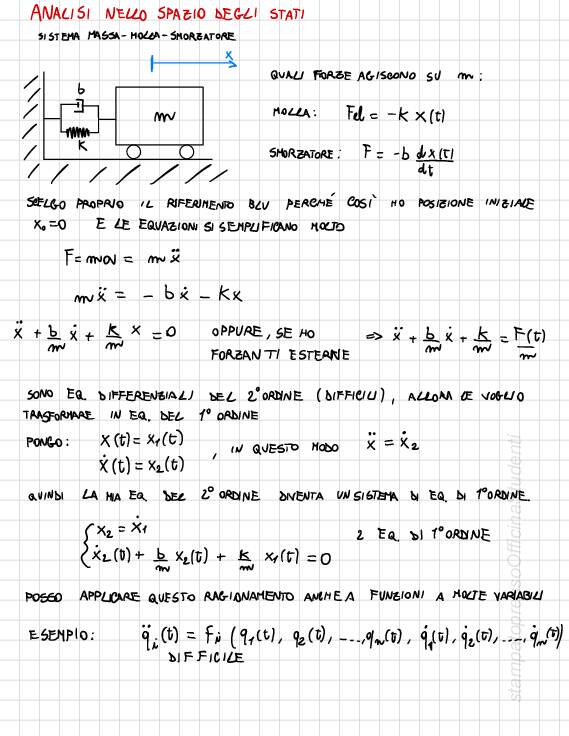 ANALISI NELLO SPAZIO DEGLI STATI
SISTEMA MASSA-MOLLA-SMORZATORE
x
b
m
K
QUALI FORZE AGISCONO SU m:
MOLLA: Fel = -K x(t)
SMORZATORE: F = -b dx(t)/dt
SCELGO PROPRIO IL RIFERIMENTO BLU PERCHÉ COSÌ HO POSIZIONE INIZIALE
x₀=0 E LE EQUAZIONI SI SEMPLIFICANO MOLTO
F=ma = mẍ
mẍ = -bẋ - Kx
ẍ + b/m ẋ + k/m x = 0 OPPURE, SE HO FORZANTI ESTERNE => ẍ + b/m ẋ + k/m = F(t)/m
SONO EQ. DIFFERENZIALI DEL 2° ORDINE (DIFFICILI), ALLORA LE VOGLIO
TRASFORMARE IN EQ. DEL 1° ORDINE
PONGO: x(t) = x₁(t)
ẋ(t) = x₂(t) , IN QUESTO MODO ẍ = ẋ₂
QUINDI LA MIA EQ. DEL 2° ORDINE DIVENTA UN SISTEMA DI EQ. DI 1° ORDINE.
{ x₂ = ẋ₁
ẋ₂(t) + b/m x₂(t) + k/m x₁(t) = 0
2 EQ. DI 1° ORDINE
POSSO APPLICARE QUESTO RAGIONAMENTO ANCHE A FUNZIONI A MOLTE VARIABILI
ESEMPIO: q̈ᵢ(t) = Fᵢ (q₁(t), q₂(t), ...., qₙ(t), q̇₁(t), q̇₂(t), ...., q̇ₙ(t))
DIFFICILE
stampatopressoOfficinaStudenti